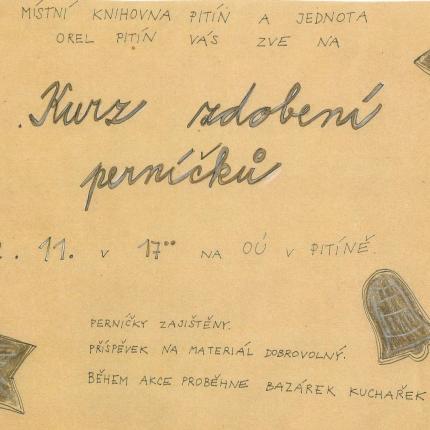 MÍSTNÍ KNIHOVNA PITÍN A JEDNOTA
OREL PITÍN VÁS ZVE NA
Kurz zdobení
perníčků
. 11. v 17°° NA OÚ V PITÍNĚ.
PERNÍČKY ZAJIŠTĚNY.
PŘÍSPĚVEK NA MATERIÁL DOBROVOLNÝ.
BĚHEM AKCE PROBĚHNE BAZÁREK KUCHAŘEK